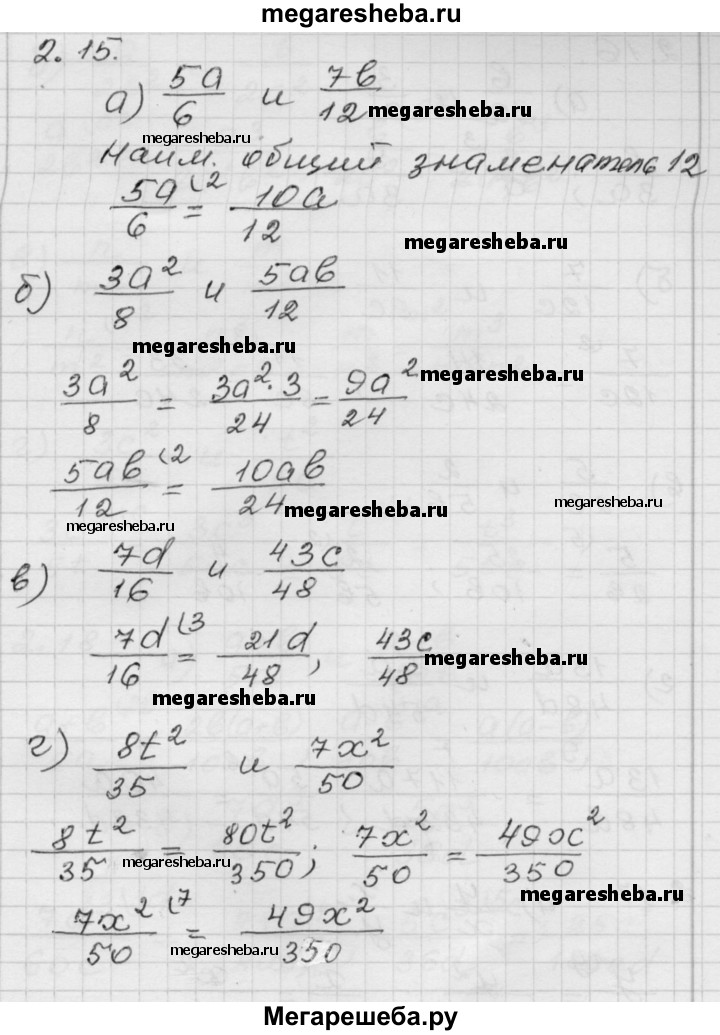 megaresheba.ru
2.15.
а) 5a/6 и 7b/12 megaresheba.ru
megaresheba.ru
Наим. общий знаменатель 12
5a/6 (2 = 10a/12
megaresheba.ru
б) 3a²/8 и 5ab/12
megaresheba.ru
3a²/8 = 3a²·3/24 = 9a²/24 megaresheba.ru
5ab/12 (2 = 10ab/24
megaresheba.ru megaresheba.ru megaresheba.ru
в) 7d/16 и 43c/48
7d/16 (3 = 21d/48; 43c/48 megaresheba.ru
megaresheba.ru
г) 8t²/35 и 7x²/50
8t²/35 = 80t²/350; 7x²/50 = 49x²/350
megaresheba.ru megaresheba.ru
7x²/50 (7 = 49x²/350
megaresheba.ru megaresheba.ru
Мегарешеба.ру